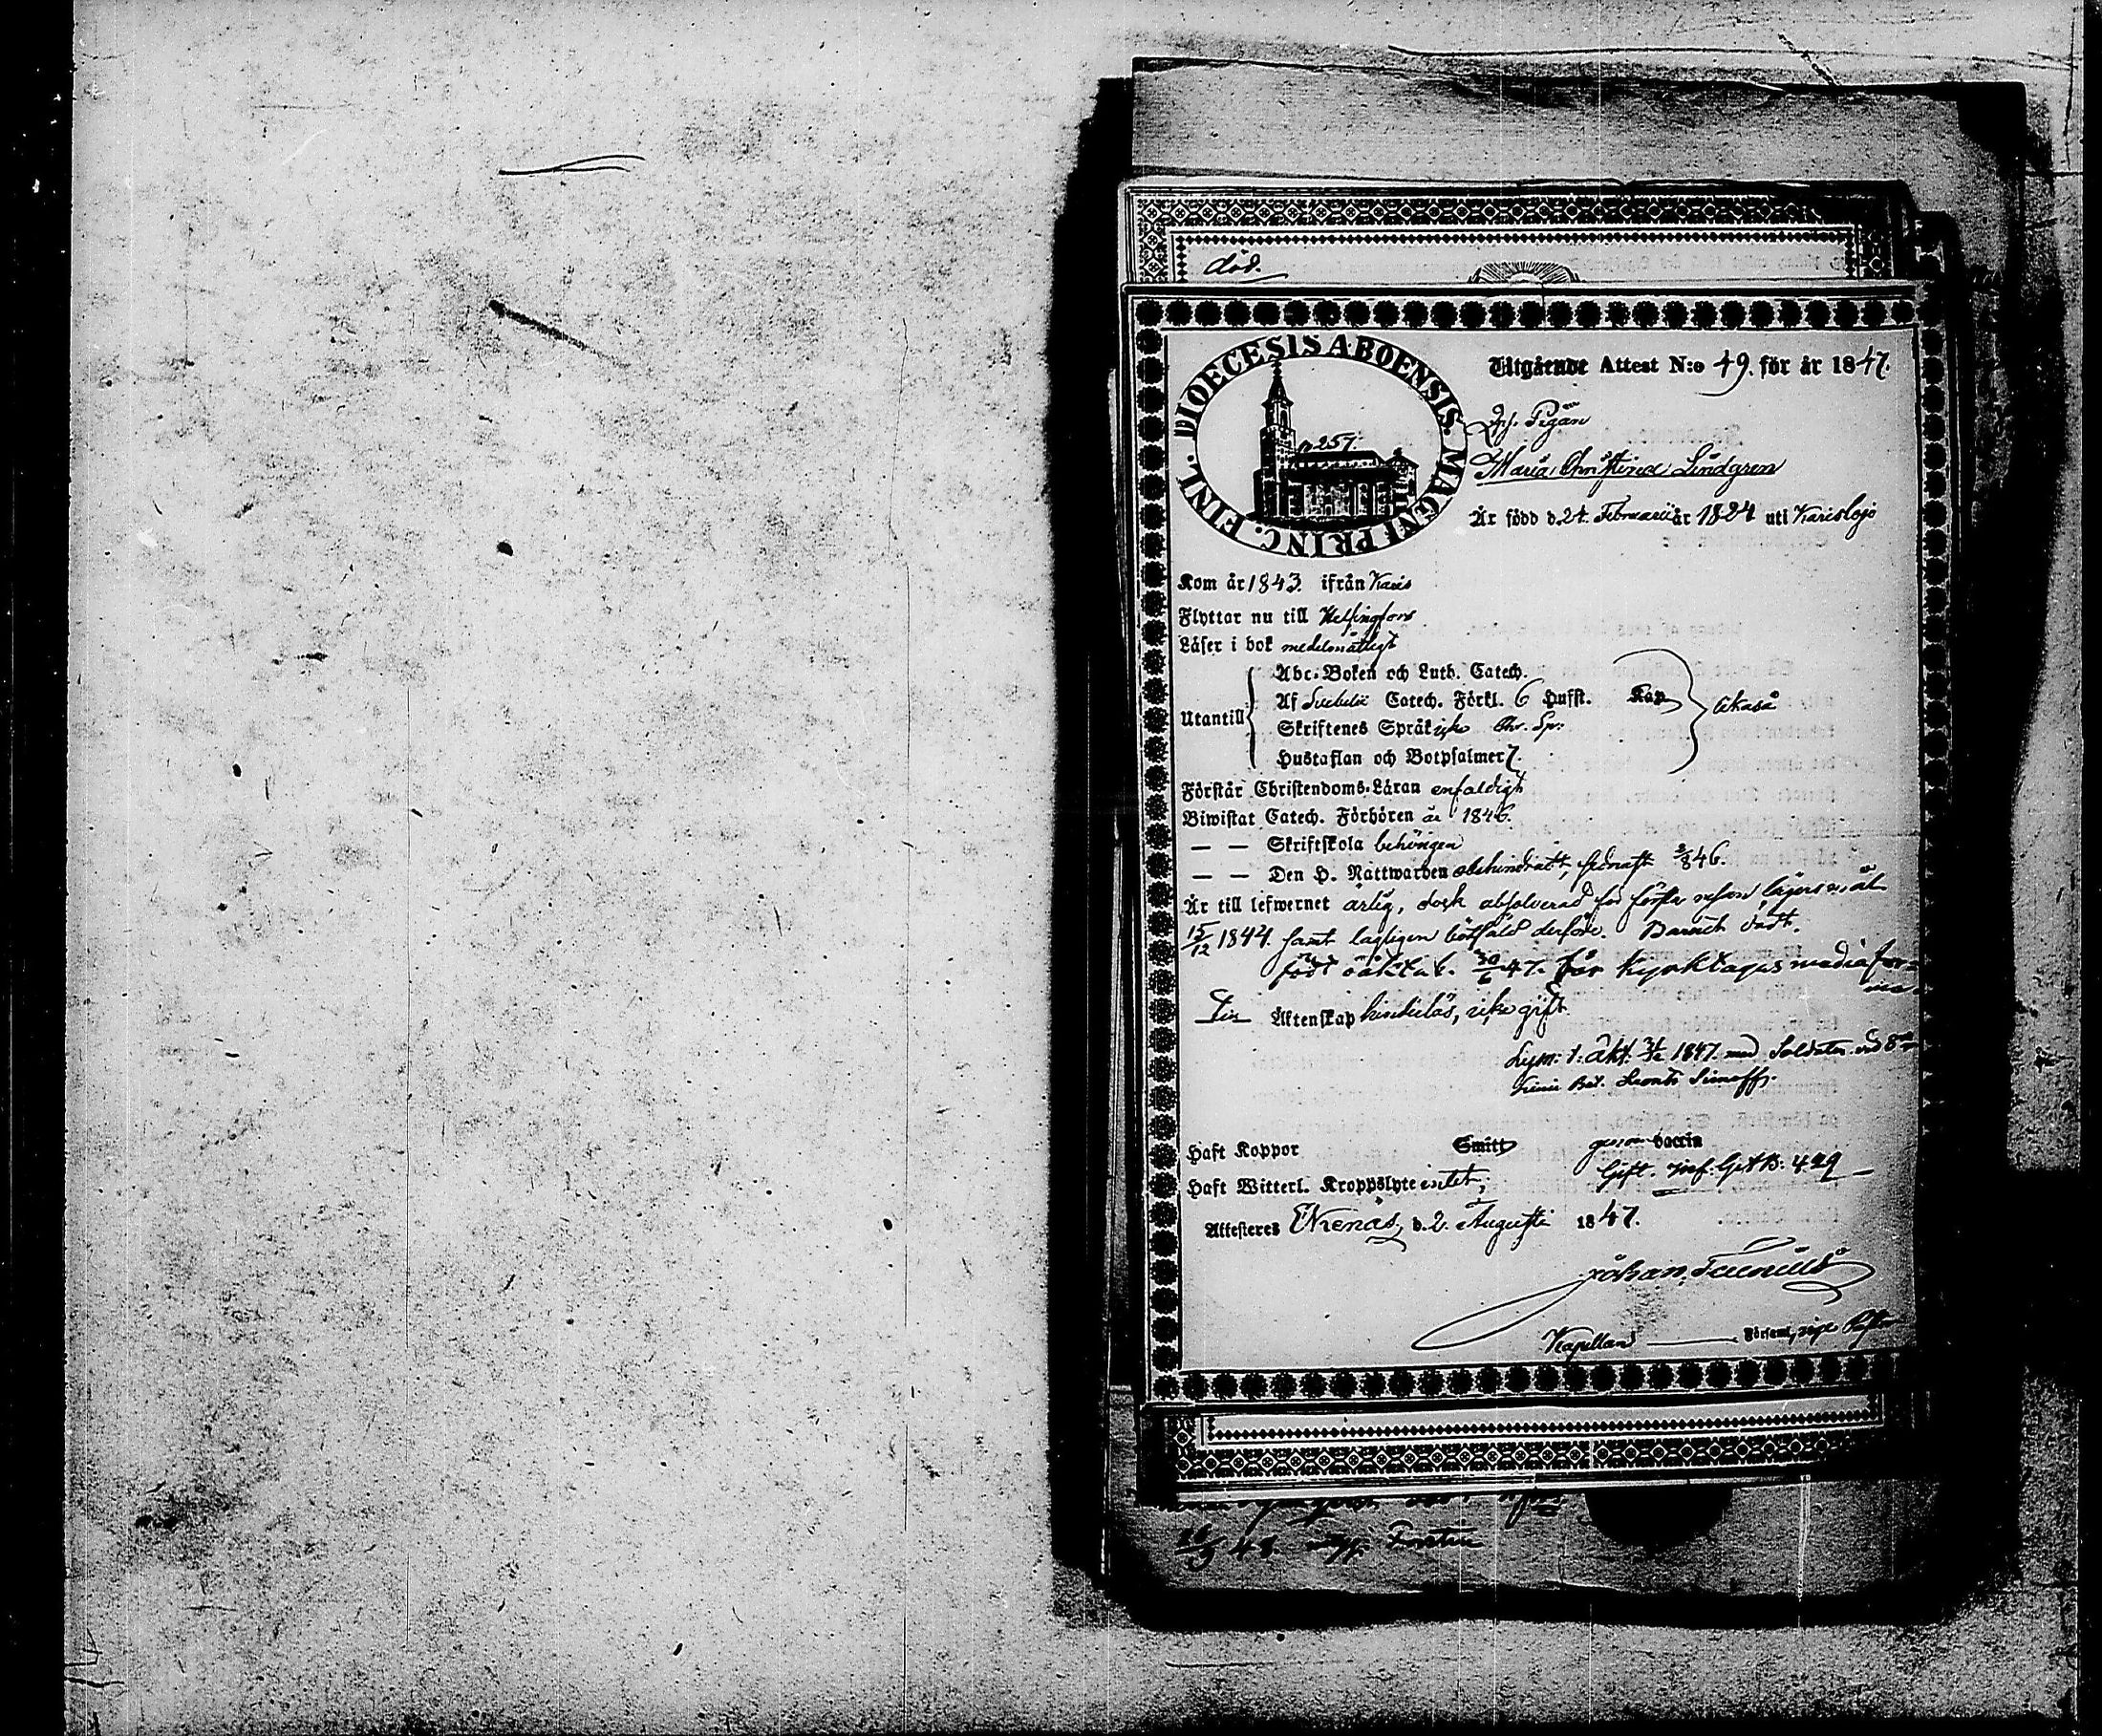 död.
DIOECESIS ABOENSIS. MAGNI PRINC. FINL.
p 257.
Utgående Attest N:o 49. för år 1847.
Pigan
Maria Christina Lindgren
Är född d. 24. Februarii år 1824 uti Karislojo
Kom år 1843. ifrån Karis
Flyttar nu till Helsingfors
Läser i bok medelmåttligt
Abc-Boken och Luth. Catech.
Af Svebelii Catech. Förkl. 6 Hufst. Kap
Utantill
Skriftenes Språk Sp.
Hustaflan och Botpsalmer 7.
Förstår Christendoms-Läran enfaldigt
Biwistat Catech. Förhören år 1846.
— — Skriftskola behörigen
— — Den H. Nattwarden obehindradt, sednast 2/8 46.
Är till lefwernet ärlig, dock absolverad för första resan lägersmål
15/12 1844. samt lagligen bötfäld derföre. Barnet dödt.
född oäkta b. 47. får kyrktagas med
Till Äktenskap hinderlös, icke gift.
Lysn: t. äkt. 1847. med Soldaten vid 8
Haft Koppor Smitt genom vaccin
Gift.
Haft Witterl. Kroppslyte intet,
Attesteras Ekenäs, d. 2. Augusti 1847.
Johan
Kapellan ——— Församl,
48. Forsten